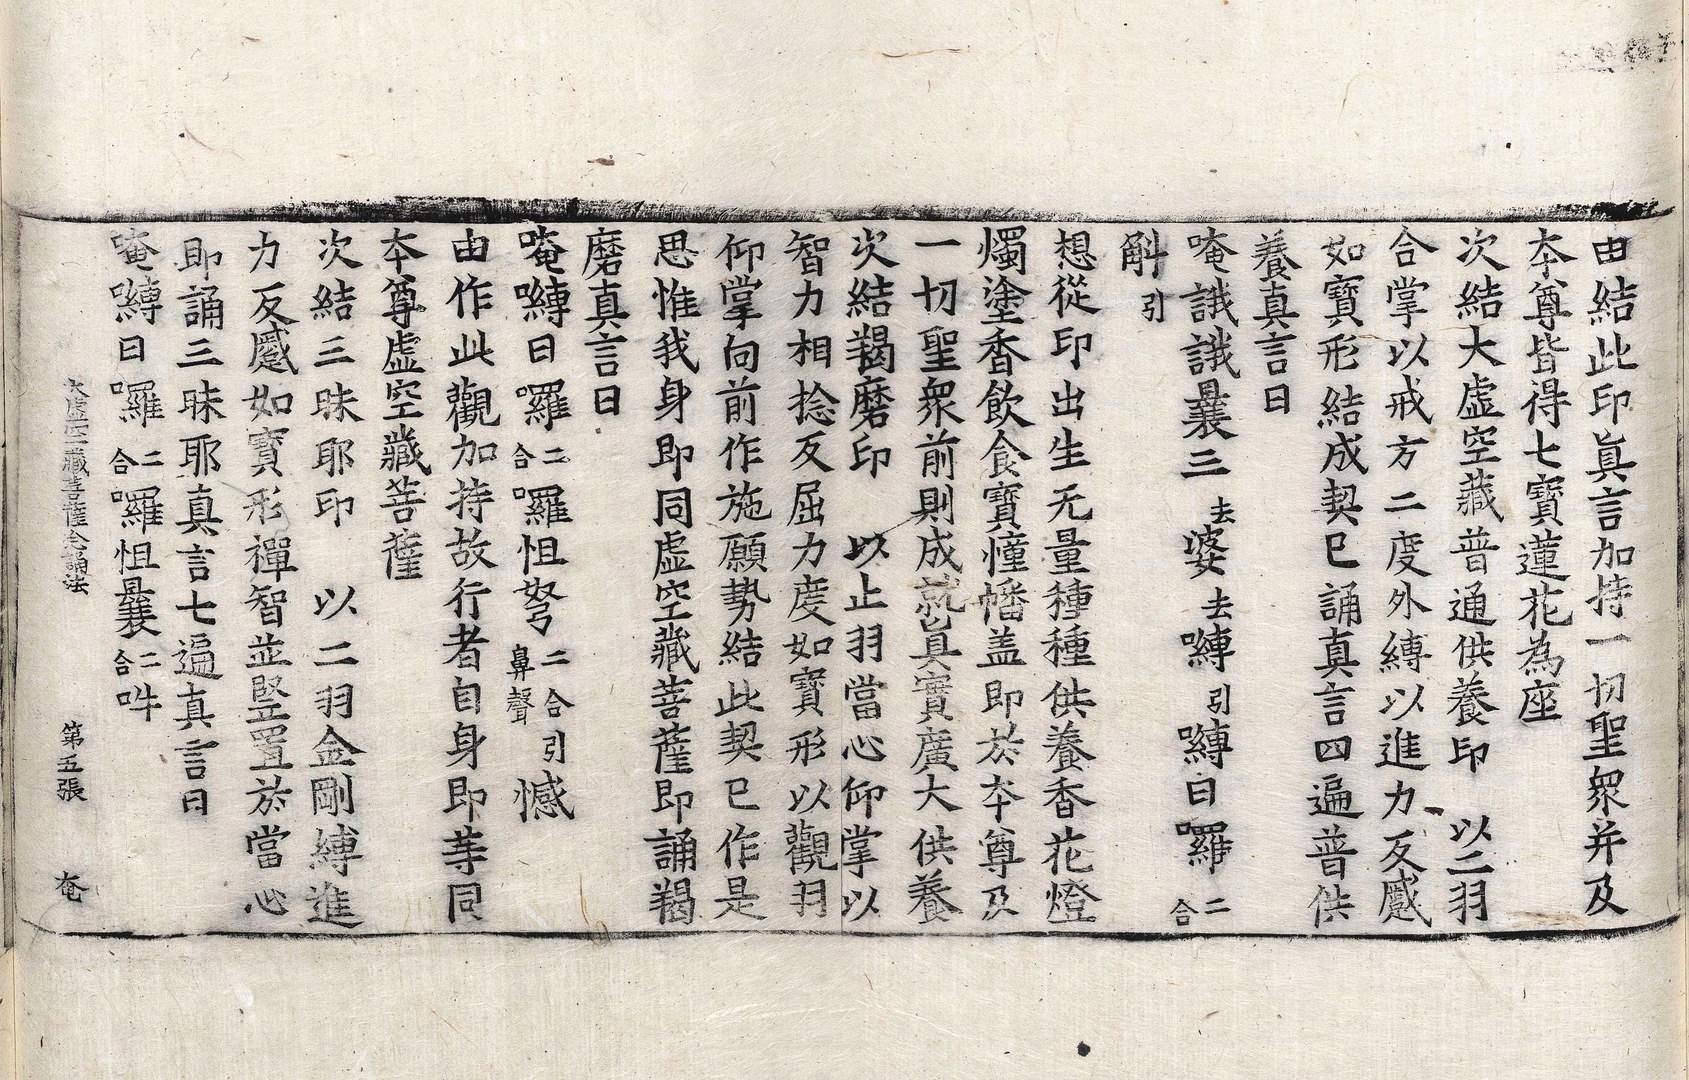 由結此印真言加持一切聖衆并及
本尊皆得七寶蓮花為座
次結大虛空藏普通供養印　以二羽
合掌以戒方二度外縛以進力反蹙
如寶形結成契已誦真言四遍普供
養真言曰
唵誐誐曩三去婆去嚩引嚩日囉二合
斛引
想從印出生无量種種供養香花燈
燭塗香飲食寶幢幡盖即於本尊及
一切聖衆前則成就真實廣大供養
次結羯磨印　以止羽當心仰掌以
智力相捻反屈力度如寶形以觀羽
仰掌向前作施願勢結此契已作是
思惟我身即同虛空藏菩薩即誦羯
磨真言曰
唵嚩日囉二合囉怛弩二合引鼻聲憾
由作此觀加持故行者自身即等同
本尊虛空藏菩薩
次結三昧耶印　以二羽金剛縛進
力反蹙如寶形禪智並竪置於當心
即誦三昧耶真言七遍真言曰
唵嚩日囉二合囉怛曩二合吽
大虛空藏菩薩念誦法　第五張　奄